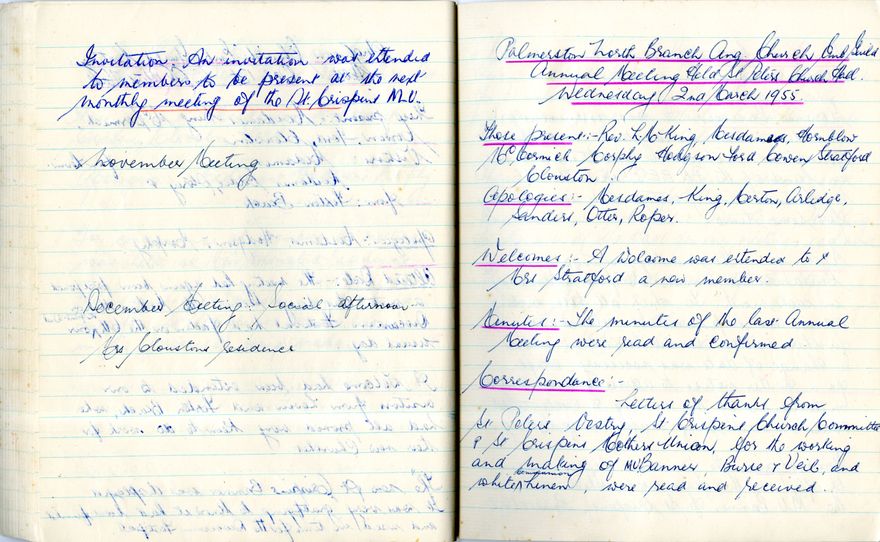 Invitation. An invitation was extended
to members to be present at the next
monthly meeting of the St. Crispins M.U.
November Meeting
December Meeting: Social afternoon
Mrs Cloustons residence
Palmerston North Branch Ang Church Emb. Guild
Annual Meeting Held St Peters Church Hall.
Wednesday 2nd March 1955.
Those present:- Rev. L McKing, Mesdames, Hornblow
McCormick Corphy Hodgson Ford Cowen Stratford
Clouston.
Apologies:- Mesdames, King, Merton, Arlidge,
Sanders, Otter, Roper.
Welcomes:- A Welcome was extended to
Mrs Stratford a new member.
Minutes:- The minutes of the last Annual
Meeting were read and confirmed
Correspondance:-
Letters of thanks from
St Peters Vestry, St Crispins Church Committee
& St Crispins Mothers Union, for the working
and making of MU Banner, Burse & Veil, and
white linen, were read and received.